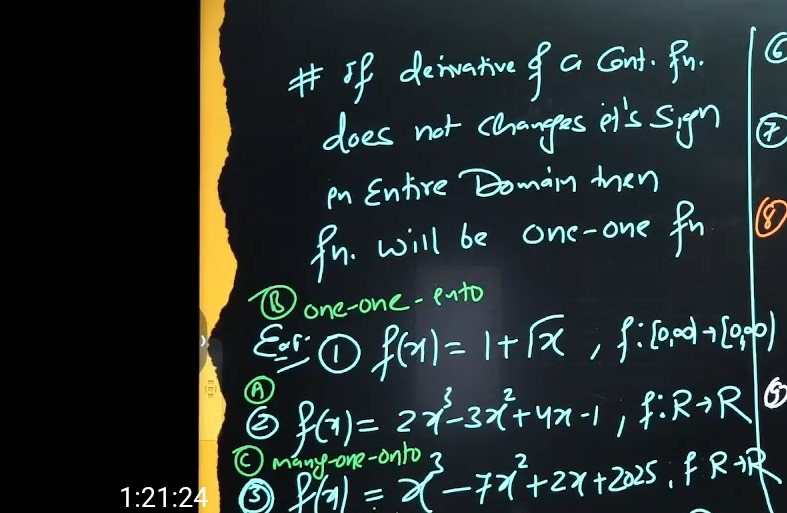 # If derivative of a Cont. fn.
does not changes it's Sign
in Entire Domain then
fn. will be one-one fn
Ⓑ one-one-into
Ex: ① f(x) = 1+√x , f:[0,∞)→[0,∞)
Ⓐ
② f(x) = 2x³-3x²+4x-1 , f:R→R
Ⓒ many-one-onto
③ f(x) = x³-7x²+2x+2025, f R→R
⑥
⑦
⑧
⑨
1:21:24